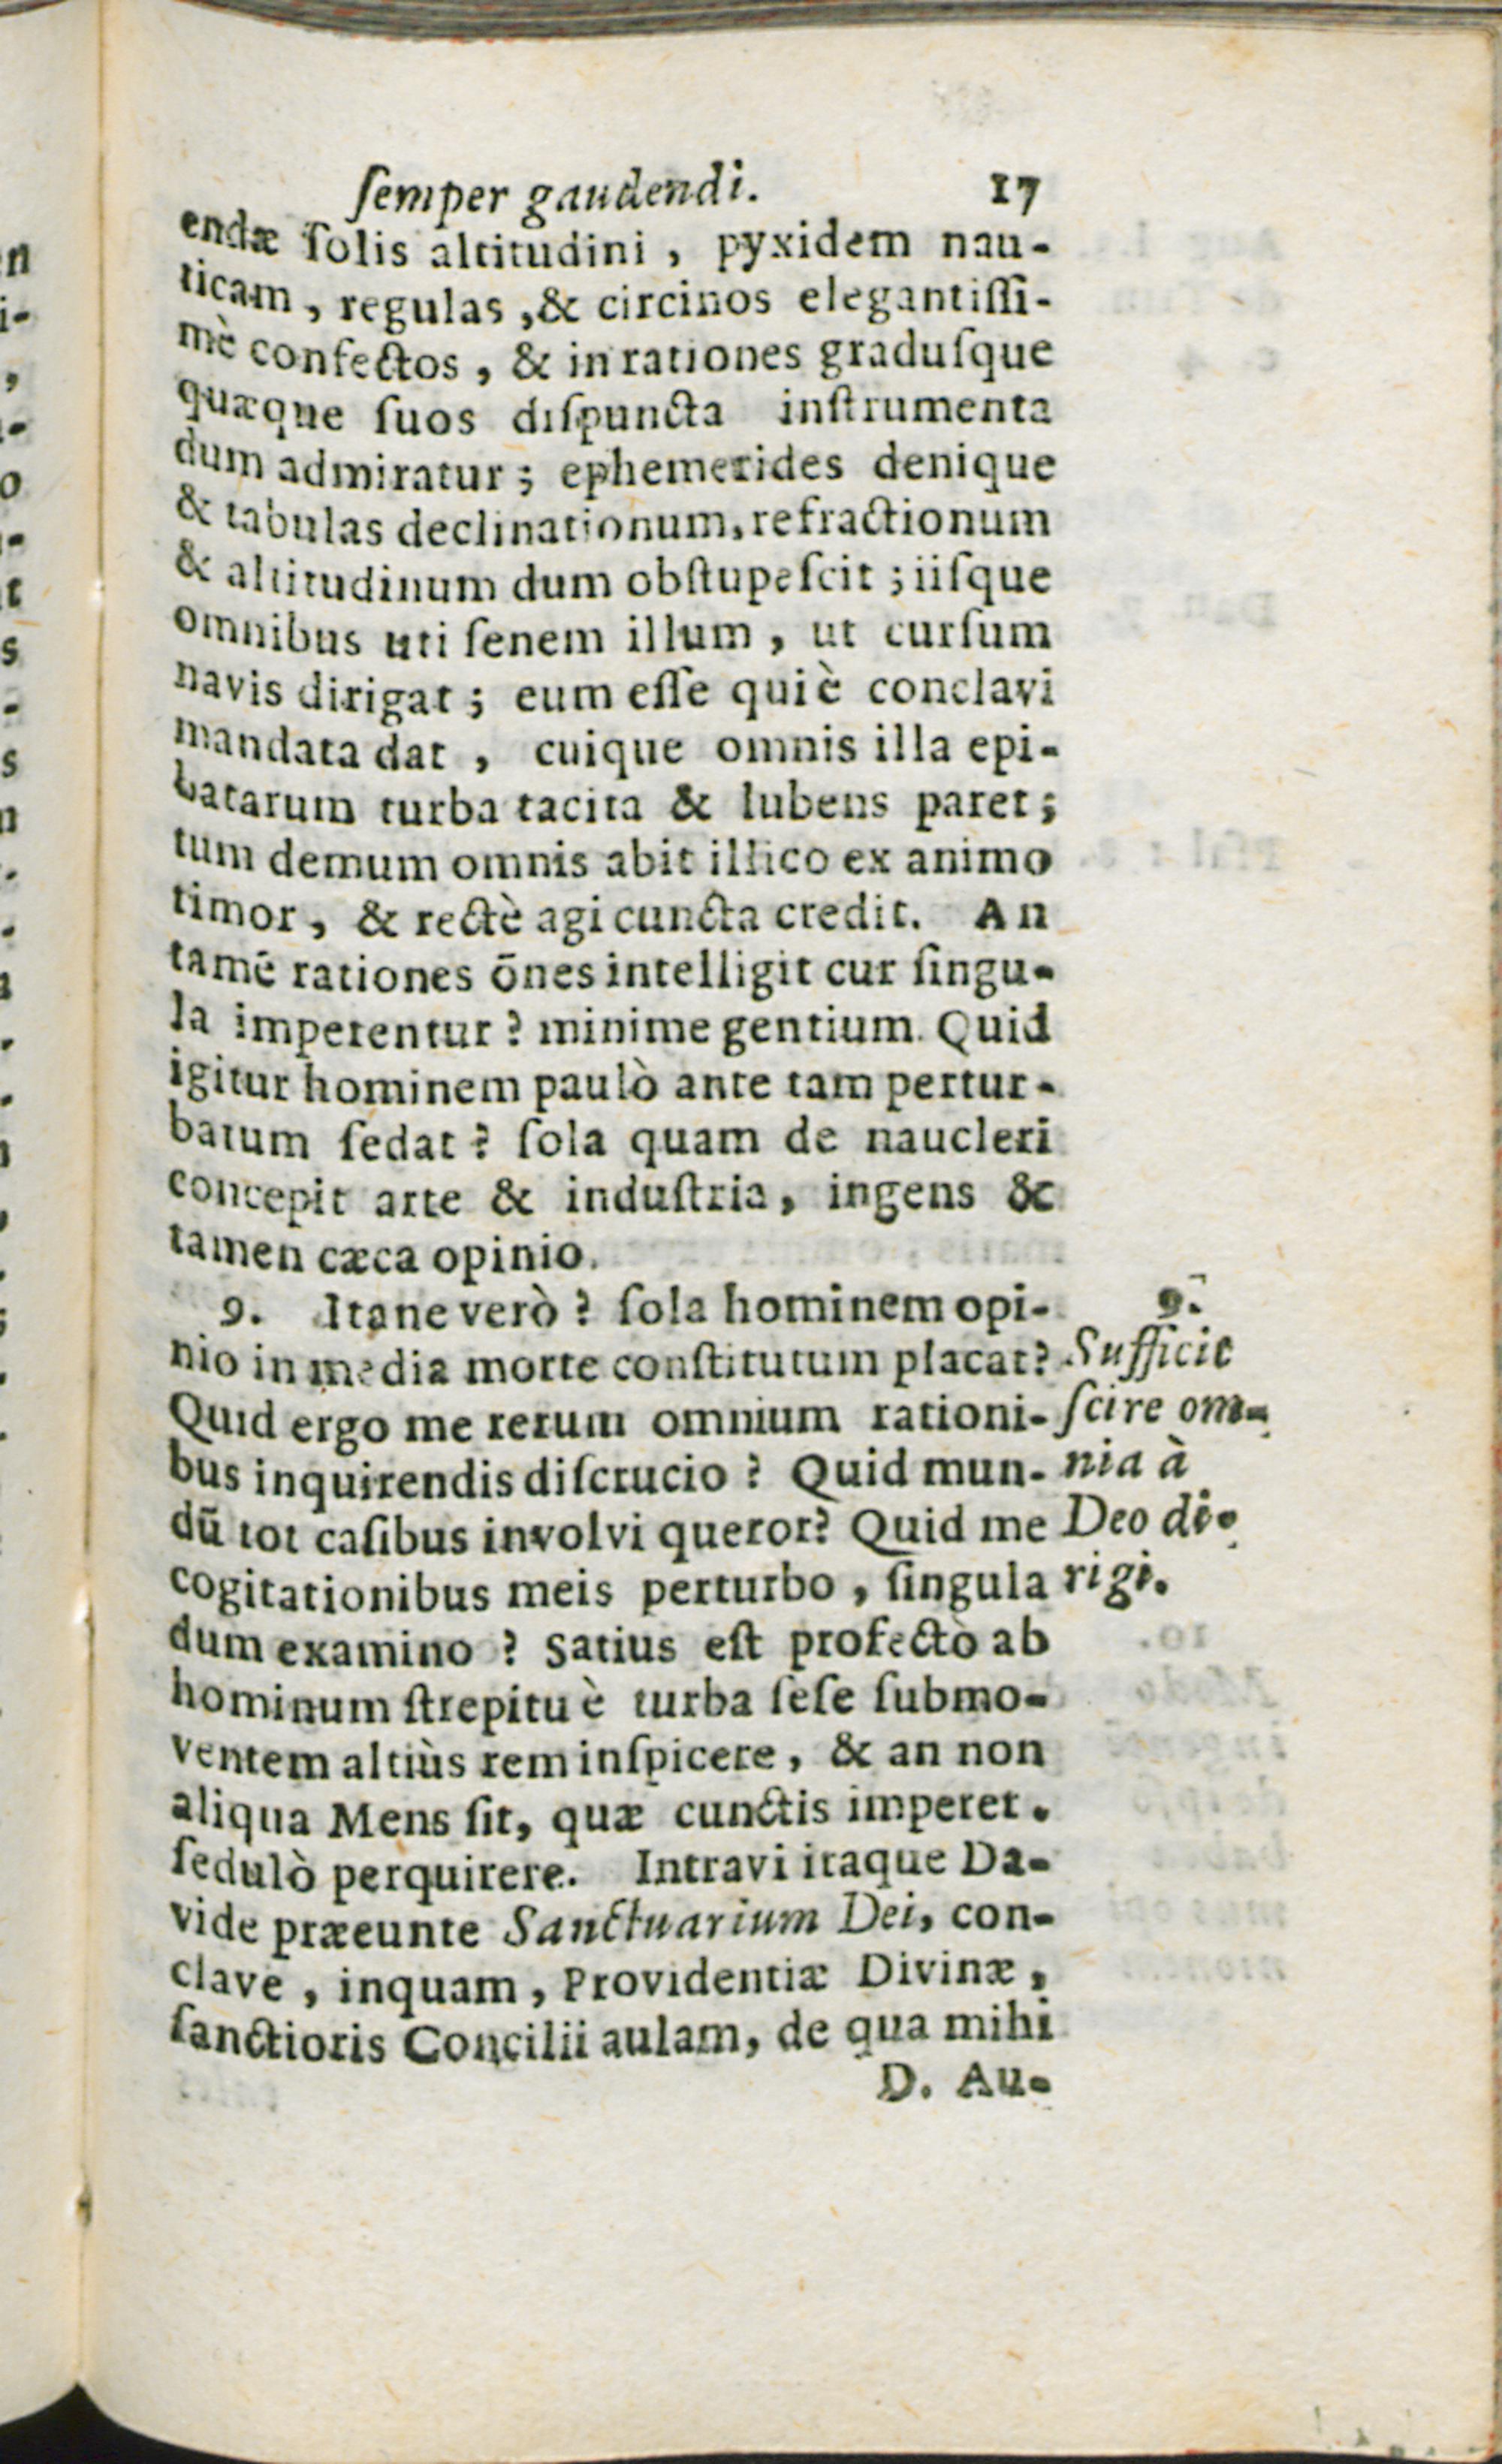 ſemper gaudendi. 17
endæ ſolis altitudini , pyxidem nau-
ticam , regulas ,& circinos elegantiſſi-
mè confectos , & in rationes graduſque
quæque ſuos diſpuncta inſtrumenta
dum admiratur ; ephemerides denique
& tabulas declinationum, refractionum
& altitudinum dum obſtupeſcit ; iiſque
omnibus uti ſenem illum , ut curſum
navis dirigat ; eum eſſe qui è conclavi
mandata dat , cuique omnis illa epi-
batarum turba tacita & lubens paret ;
tum demum omnis abit illico ex animo
timor , & rectè agi cuncta credit. An
tamē rationes ōnes intelligit cur ſingu-
la imperentur ? minime gentium. Quid
igitur hominem paulò ante tam pertur-
batum ſedat ? ſola quam de naucleri
concepit arte & induſtria, ingens &
tamen cæca opinio.
9. Itane verò ? ſola hominem opi-
nio in media morte conſtitutum placat ?
Quid ergo me rerum omnium rationi-
bus inquirendis diſcrucio ? Quid mun-
dū tot caſibus involvi queror? Quid me
cogitationibus meis perturbo , ſingula
dum examino ? Satius eſt profectò ab
hominum ſtrepitu è turba ſeſe ſubmo-
ventem altiùs rem inſpicere , & an non
aliqua Mens ſit, quæ cunctis imperet.
ſedulò perquirere. Intravi itaque Da-
vide præeunte Sanctuarium Dei, con-
clave , inquam , Providentiæ Divinæ ,
ſanctioris Concilii aulam, de qua mihi
D. Au-
9.
Sufficit
ſcire om-
nia à
Deo di-
rigi.